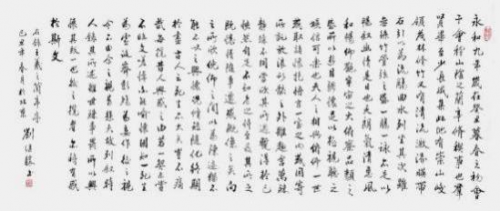 永和九年歲在癸丑暮春之初會
于會稽山陰之蘭亭脩禊事也羣
賢畢至少長咸集此地有崇山峻
領茂林脩竹又有清流激湍映帶左
右引以為流觴曲水列坐其次雖
無絲竹管弦之盛一觴一詠亦足以
暢敘幽情是日也天朗氣清惠風
和暢仰觀宇宙之大俯察品類之
盛所以遊目騁懷足以極視聽之
娛信可樂也夫人之相與俯仰一世
或取諸懷抱悟言一室之內或因寄
所託放浪形骸之外雖趣舍萬殊
靜躁不同當其欣於所遇暫得於己
快然自足不知老之將至及其所之
既惓情隨事遷感慨係之矣向
之所欣俛仰之間以為陳迹猶不
能不以之興懷況脩短隨化終期
於盡古人云死生亦大矣豈不痛
哉每攬昔人興感之由若合一契未嘗
不臨文嗟悼不能喻之於懷固知一死生
為虛誕齊彭殤為妄作後之視
今亦由今之視昔悲夫故列敘時
人錄其所述雖世殊事異所以興
懷其致一也後之攬者亦將有感
於斯文
王羲之蘭亭序
己丑年春月於北京
劉